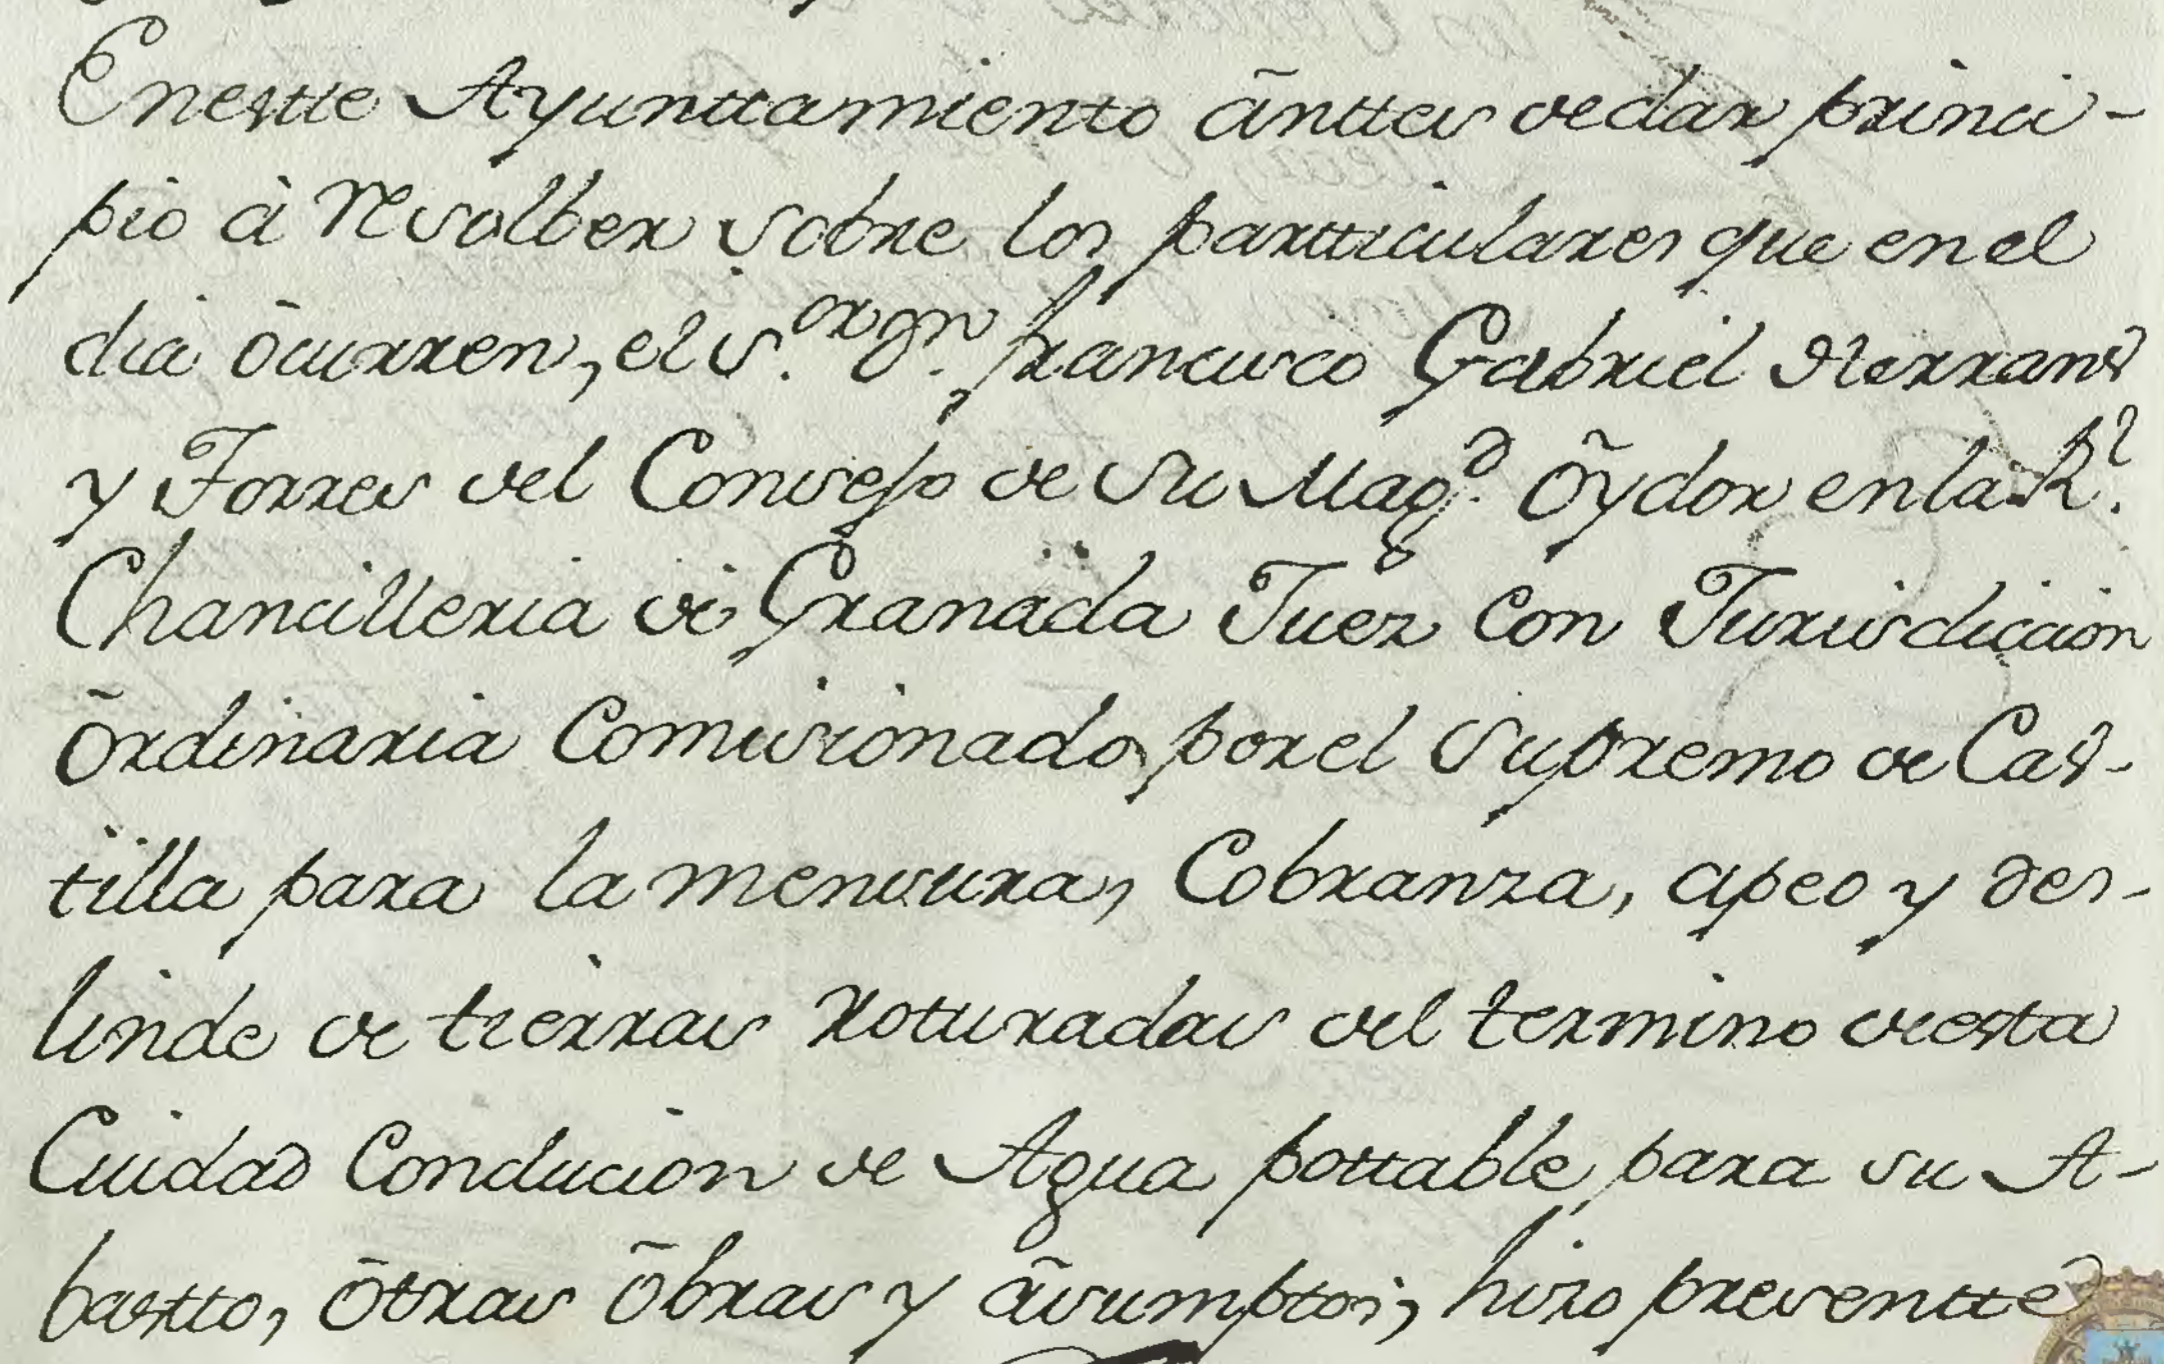 Enestte Ayunttamiento ãnttes dedar princi-
pio à resolber sobre los partticulares que en el
dia õcurren, el S.or Dn. francisco Gabriel Herrans
y Torres del Consejo de su Mag.d õydor en la Rl.
Chancilleria de Granada Juez con Jurisdiccion
õrdinaria Comisionado por el Supremo de Cas-
tilla para la mensura, Cobranza, apeo y des-
linde de tierras roturadas del termino desta
Cuidad Conducion de Agua pottable para su A-
bastto, õtras õbras y ãsumptos, hizo presentte